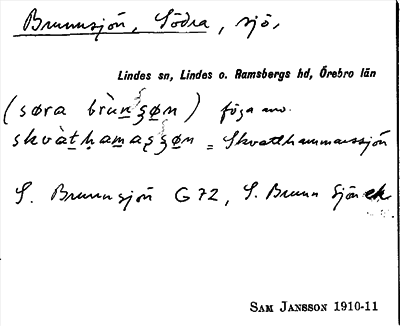 Brunnsjön, Södra, sjö,
Lindes sn, Lindes o. Ramsbergs hd, Örebro län
(søra brùnʂøn) föga anv.
skvàtḥamaʂʂøn = Skvatthammarssjön
S. Brunnsjön G 72, S. Brunn Sjön ek.
SAM JANSSON 1910-11